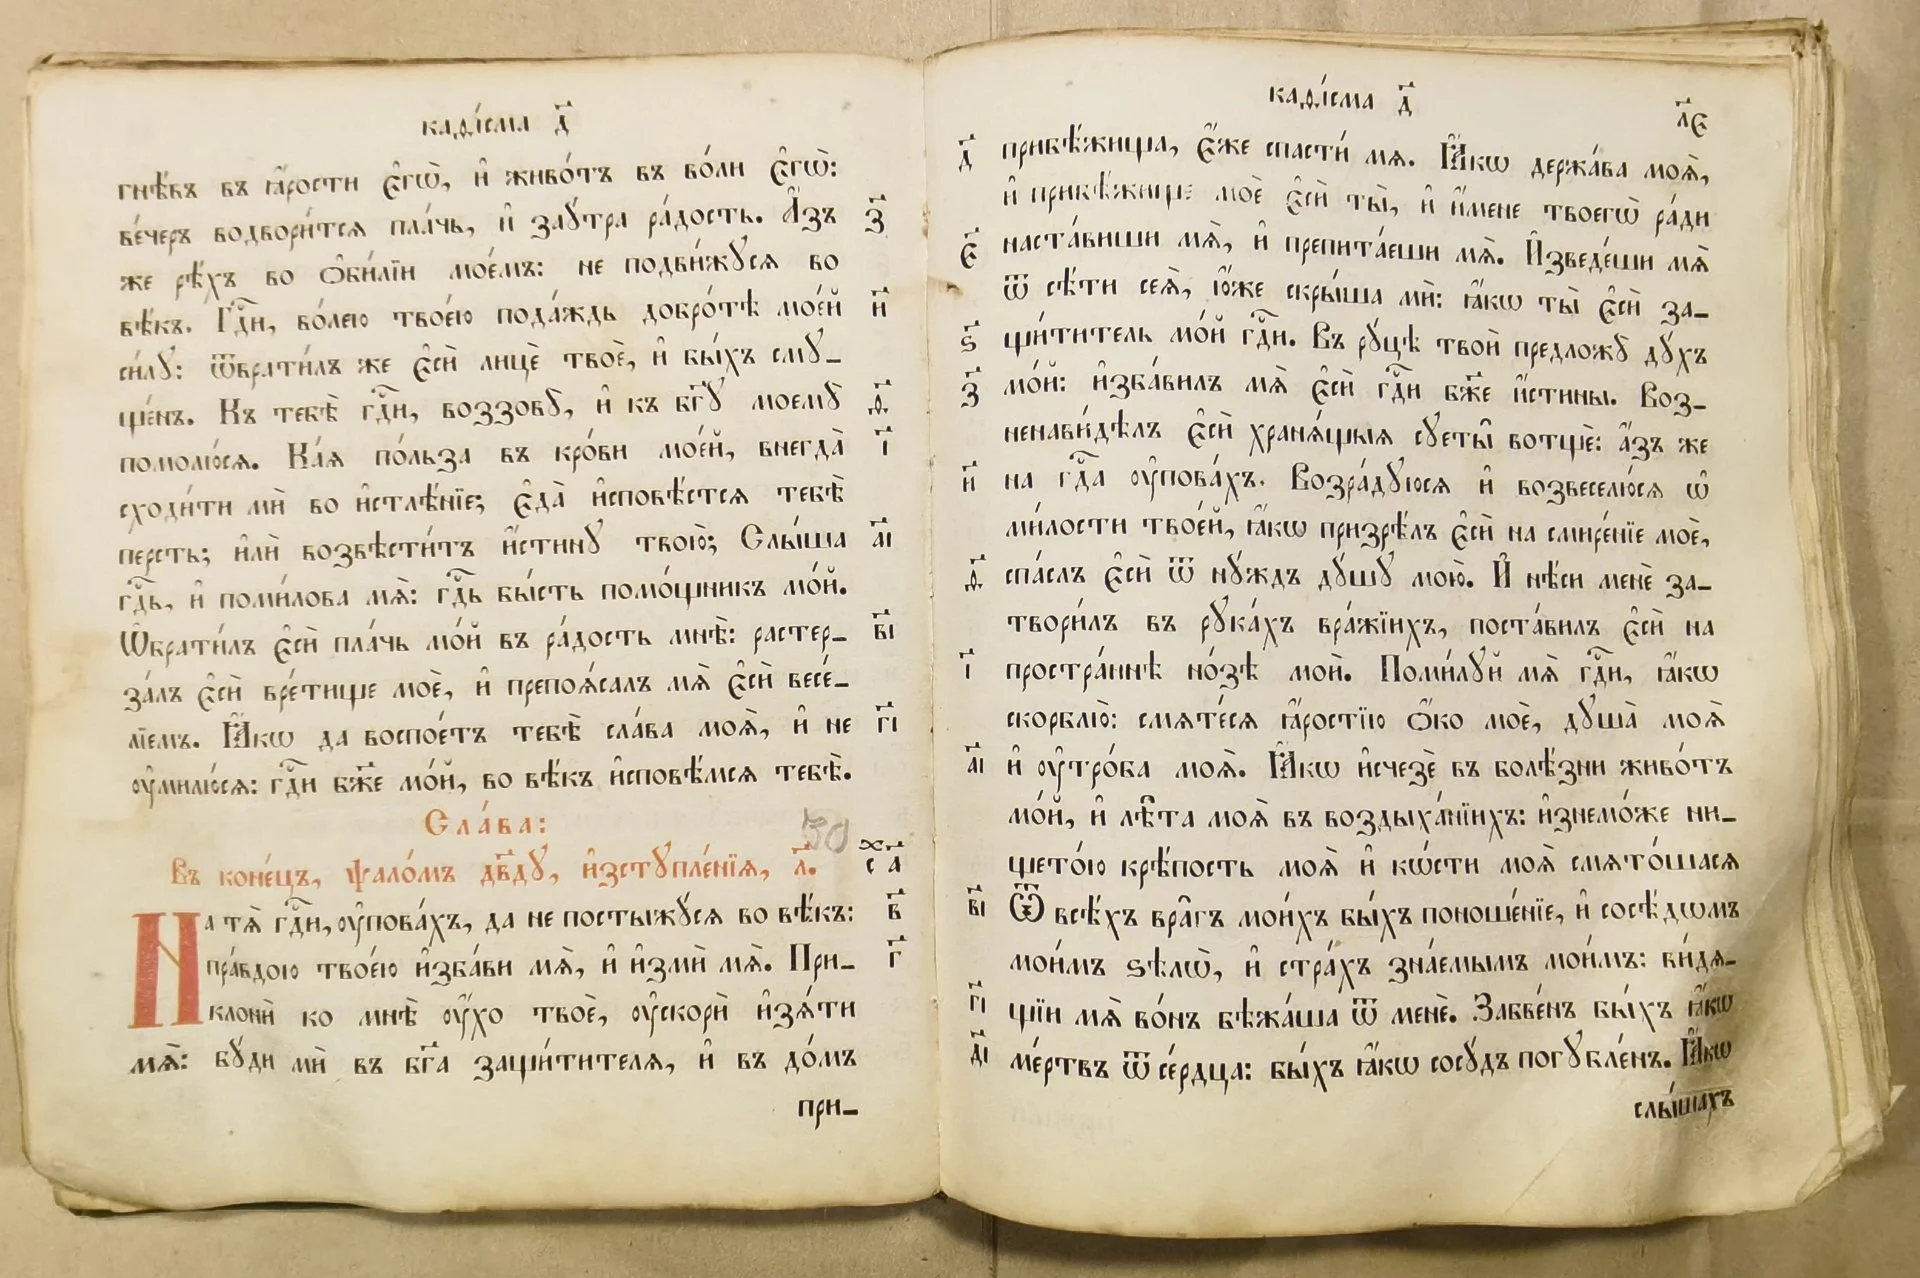 каѳі́сма д҃
гнѣ́въ въ ꙗ҆́рости є҆гѡ̀, и҆ живо́тъ въ во́ли є҆гѡ̀:
ве́черъ водвори́тсѧ пла́чь, и҆ заꙋ́тра ра́дость. А҆́зъ з҃
же рѣ́хъ во ѻ҆би́лїи мое́мъ: не подви́жꙋсѧ во
вѣ́къ. Гдⷭ҇и, во́лею твое́ю пода́ждь добро́тѣ мое́й и҃
си́лꙋ: ѿврати́лъ же є҆сѝ лицѐ твоѐ, и҆ бы́хъ смꙋ-
ще́нъ. Къ тебѣ̀ гдⷭ҇и, воззовꙋ̀, и҆ къ бг҃ꙋ моемꙋ̀ ѳ҃
помолю́сѧ. Ка́ѧ по́льза въ кро́ви мое́й, внегда̀ і҃
сходи́ти мѝ во и҆стлѣ́нїе; є҆да̀ и҆сповѣ́стсѧ тебѣ̀
персть; и҆лѝ возвѣсти́тъ и҆́стинꙋ твою̀; Слы́ша а҃і
гдⷭ҇ь, и҆ поми́лова мѧ̀: гдⷭ҇ь бы́сть помо́щникъ мо́й.
Ѡ҆брати́лъ є҆сѝ пла́чь мо́й въ ра́дость мнѣ̀: растер- в҃і
за́лъ є҆сѝ вре́тище моѐ, и҆ препоѧ́салъ мѧ̀ є҆сѝ весе́-
лїемъ. Ꙗ҆́кѡ да воспое́тъ тебѣ̀ сла́ва моѧ̀, и҆ не г҃і
ᲂу҆милю́сѧ: гдⷭ҇и бж҃е мо́й, во вѣ́къ и҆сповѣ́мсѧ тебѣ̀.
Сла́ва:
30
Въ коне́цъ, ѱало́мъ дв҃дꙋ, и҆зстꙋпле́нїѧ, л҃. сх҃ а҃
На тѧ̀ гдⷭ҇и, ᲂу҆пова́хъ, да не постыжꙋ́сѧ во вѣ́къ: в҃
пра́вдою твое́ю и҆зба́ви мѧ̀, и҆ и҆змѝ мѧ̀. При- г҃
клонѝ ко мнѣ̀ ᲂу҆́хо твоѐ, ᲂу҆скорѝ и҆зѧ́ти
мѧ̀: бꙋ́ди мѝ въ бг҃а защи́тителѧ, и҆ въ до́мъ
при-
каѳі́сма д҃
л҃є
д҃ прибѣ́жища, є҆́же спасти́ мѧ. Ꙗ҆́кѡ держа́ва моѧ̀,
и҆ прибѣ́жище моѐ є҆сѝ ты̀, и҆ и҆́мене твоегѡ̀ ра́ди
є҃ наста́виши мѧ̀, и҆ препита́еши мѧ̀. И҆зведе́ши мѧ̀
ѿ сѣ́ти сеѧ̀, ю҆́же скры́ша мѝ: ꙗ҆́кѡ ты̀ є҆сѝ за-
ѕ҃ щи́титель мо́й гдⷭ҇и. Въ рꙋ́цѣ твоѝ предложꙋ̀ дꙋ́хъ
з҃ мо́й: и҆зба́вилъ мѧ̀ є҆сѝ гдⷭ҇и бж҃е и҆́стины. Воз-
ненави́дѣлъ є҆сѝ хранѧ́щыѧ сꙋеты̑ вотщѐ: а҆́зъ же
и҃ на гдⷭ҇а ᲂу҆пова́хъ. Возра́дꙋюсѧ и҆ возвеселю́сѧ ѡ҆
ми́лости твое́й, ꙗ҆́кѡ призрѣ́лъ є҆сѝ на смире́нїе моѐ,
ѳ҃ спа́слъ є҆сѝ ѿ нꙋ́ждъ дꙋ́шꙋ мою̀. И҆ нѣ́си менѐ за-
твори́лъ въ рꙋка́хъ вра́жїихъ, поста́вилъ є҆сѝ на
і҃ простра́ннѣ но́зѣ моѝ. Поми́лꙋй мѧ̀ гдⷭ҇и, ꙗ҆́кѡ
скорблю̀: смѧте́сѧ ꙗ҆́ростїю ѻ҆́ко моѐ, дꙋша̀ моѧ̀
а҃і и҆ ᲂу҆тро́ба моѧ̀. Ꙗ҆́кѡ и҆счезѐ въ болѣ́зни живо́тъ
мо́й, и҆ лѣ̑та моѧ̀ въ воздыха́нїихъ: и҆знемо́же ни-
щето́ю крѣ́пость моѧ̀ и҆ кѡ́сти моѧ̀ смѧто́шасѧ
в҃і Ѿ всѣ́хъ вра̑гъ мои́хъ бы́хъ поноше́нїе, и҆ сосѣ́дѡмъ
мои́мъ ѕѣлѡ̀, и҆ стра́хъ зна́емымъ мои́мъ: ви́дѧ-
г҃і щїи мѧ̀ во́нъ бѣжа́ша ѿ менѐ. Забве́нъ бы́хъ ꙗ҆́кѡ
д҃і ме́ртвъ ѿ се́рдца: бы́хъ ꙗ҆́кѡ сосꙋ́дъ погꙋбле́нъ. Ꙗ҆́кѡ
слы́шахъ